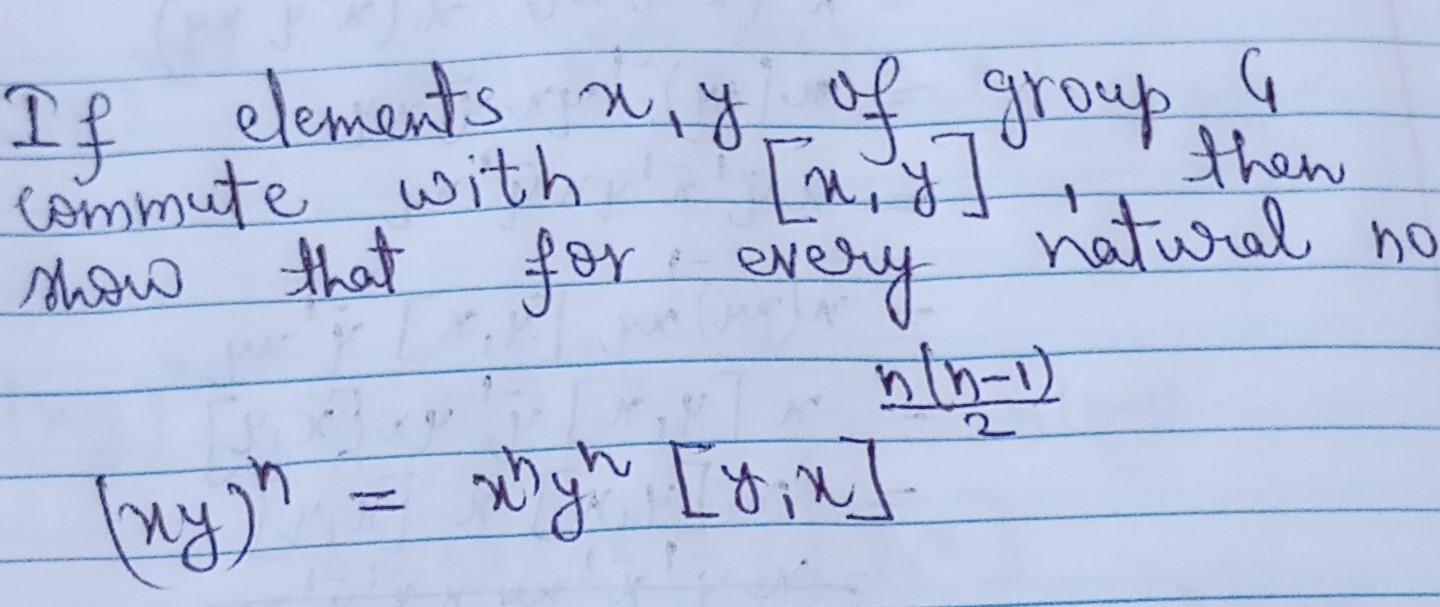 If elements x, y of group G
commute with [x, y], then
show that for every natural no
(xy)^n = x^n y^n [y, x]^{n(n-1)/2}